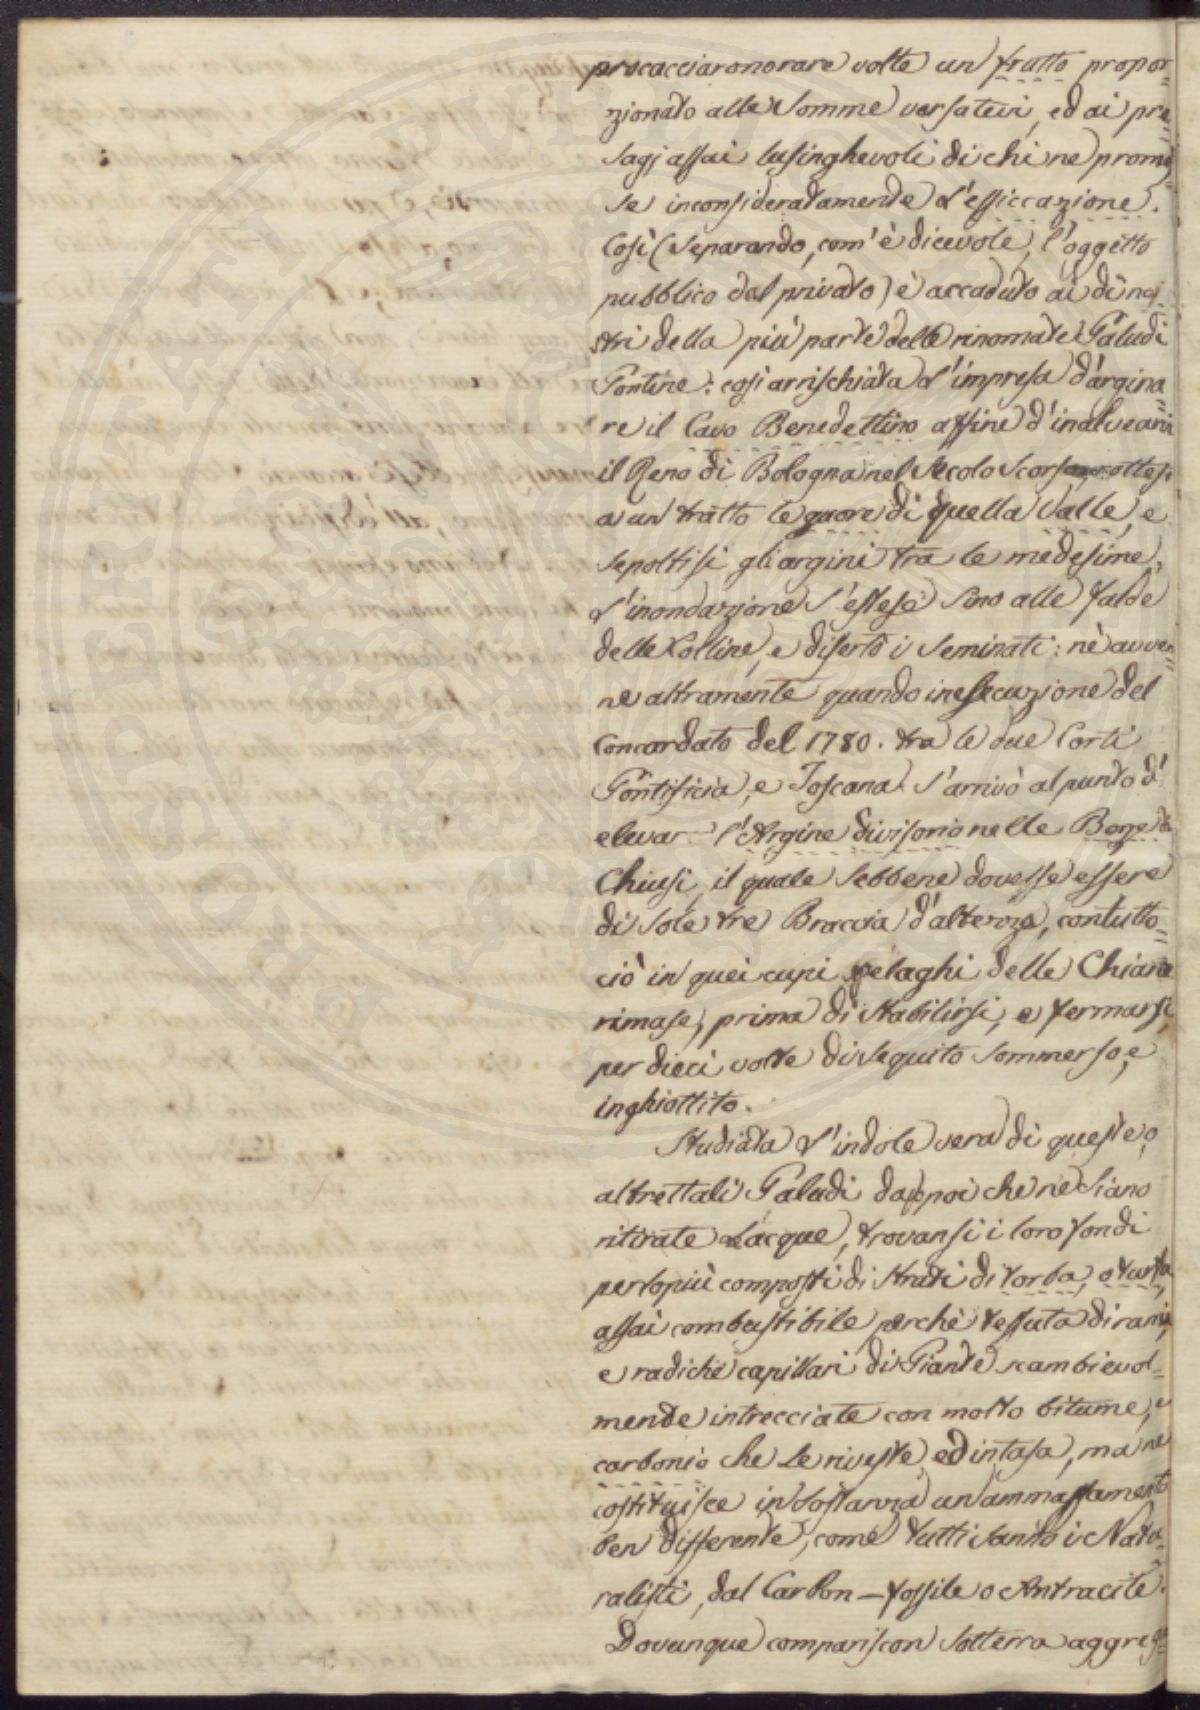 procacciarono rare volte un frutto propor=
zionato alle Somme versatevi, ed ai pre=
sagj assai lusinghevoli di chi ne prom=
se inconsideratamente l'essiccazione.
Così (separando, com'è dicevole, l'oggetto
pubblico dal privato) è accaduto ai dì no=
stri della più parte delle rinomate Paludi
Pontine: così arrischiata l'impresa d'argina=
re il Cavo Benedettino affine d'inalvearvi
il Reno di Bologna nel Secolo Scorso, rottesi
a un tratto le quore di quella Valle, e
sepoltisi gli argini tra le medesime,
l'inondazione s'estese sino alle falde
delle Colline, e disertò i Seminati: nè avven=
ne altramente quando in esecuzione del
Concordato del 1780. tra le due Corti
Pontificia, e Toscana s'arrivò al punto d'
elevar l'Argine divisorio nelle Bozze di
Chiusi, il quale sebbene dovesse essere
di sole tre Braccia d'altezza, contutto=
ciò in quei cupi pelaghi delle Chiane
rimase, prima di stabilirsi, e fermarsi,
per dieci volte di seguito sommerso, e
inghiottito.
Studiata l'indole vera di queste, o
altrettali Paludi dappoi che ne siano
ritirate l'acque, trovansi i loro fondi
perlopiù composti di strati di torba, o turfa,
assai combustibile perchè tessuta di rami,
e radiche capillari di Piante scambievol=
mente intrecciate con molto bitume, e
carbonio che le riveste, ed intasa, ma ne
costituisce in sostanza un ammassamento
ben differente, come tutti sanno i Natu=
ralisti, dal Carbon-fossile o Antracite.
Dovunque compariscon sotterra aggrega=